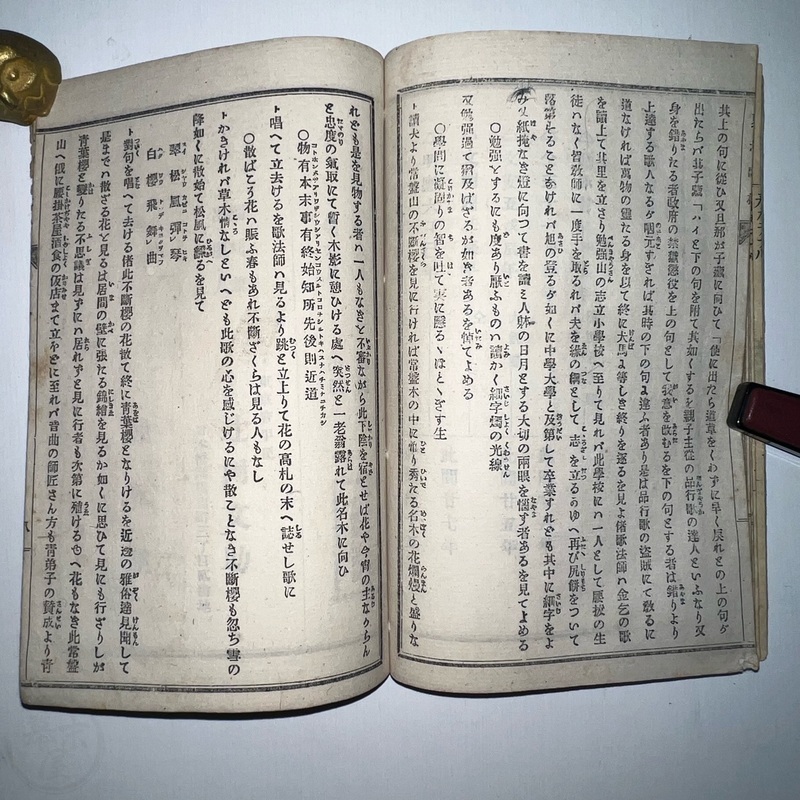 其上の句に從ひ又旦那が子藏に向ひて「使に出たら道草をくわずに早く戻れとの上の句ゲ
出たらバ其子藏「ハイと下の句を附て其如くするを親子主從の品行歌の達人といふなり又
身を錯りたる者政府の禁獄懲役を上の句として我意を改むるを下の句とする者は錯りより
上達する歌人なるゲ咽元すぎれば其時の下の句よ違ふ者あり是は品行歌の盗賊にて教るに
道なければ萬物の靈たる身を以て終に犬馬よ等しき終りを遂るを見よ偖歌法師ハ金乞の歌
を讀上て其里を立さり勉強山の志立小學校へ至りて見れバ此學校にハ一人として腰拔の生
徒ハなく皆敎師に一度手を取るれバ夫を緣の綱として志を立るゟゆへ再び尻餅をついて
落第せることなけれバ旭の登るゲ如くに中學大學と及第して卒業すれども其中に細字をよ
み又紙掩なき燈に向つて書を讀ミ人躰の日月とする大切の兩眼を惱す者あるを見てよめる
〇勉強とするにも度あり厭ふものハ讀かく細字燭の光線
又勉強過て胃及ばざるが如き者あるを悼てよめる
〇學問に凝固りの智を吐て実に隱るヽほとヽぎす生
ト讀夫より常盤山の不斷櫻を見に行ければ常盤木の中に獨り秀たる名木の花爛熳と盛りな
れども是を見物する者ハ一人もなきと不審ながら此下陰を宿とせば花や今宵の主なりらん
と忠度の氣取にて暫く木影に憩ひける處へ突然と一老翁露れて此名木に向ひ
〇物有本末事有終始知所先後則近道
唱へて立去けるを歌法師ハ見るより跳と立上りて花の高札の末へ誌せし歌に
〇散ばこう花ハ賑ふ春もあれ不斷ざくらは見る人もなし
トかきけれバ草木情なしといへども此歌の心を感じけるにや散ことなき不斷櫻も忽ち雪の
降如くに散始て松風に飜るを見て
翠松風彈琴
白櫻飛舞曲
ト對句を唱へて去ける偖此不斷櫻の花散て終に青葉櫻となりけるを近邊の雅俗達見聞して
是まてハ散ざる花と見るは居間の壁に張たる錦繪を見るか如くに思ひて見にも行ざりしが
青葉櫻と變りたる不思議は見ずにハ居れずと見に行者も次第に殖けるゟへ花もなき此常盤
山へ俄に腰掛茶屋酒食の仮店まて立ならに至れバ音曲の師匠さん方も青弟子の賛成より青